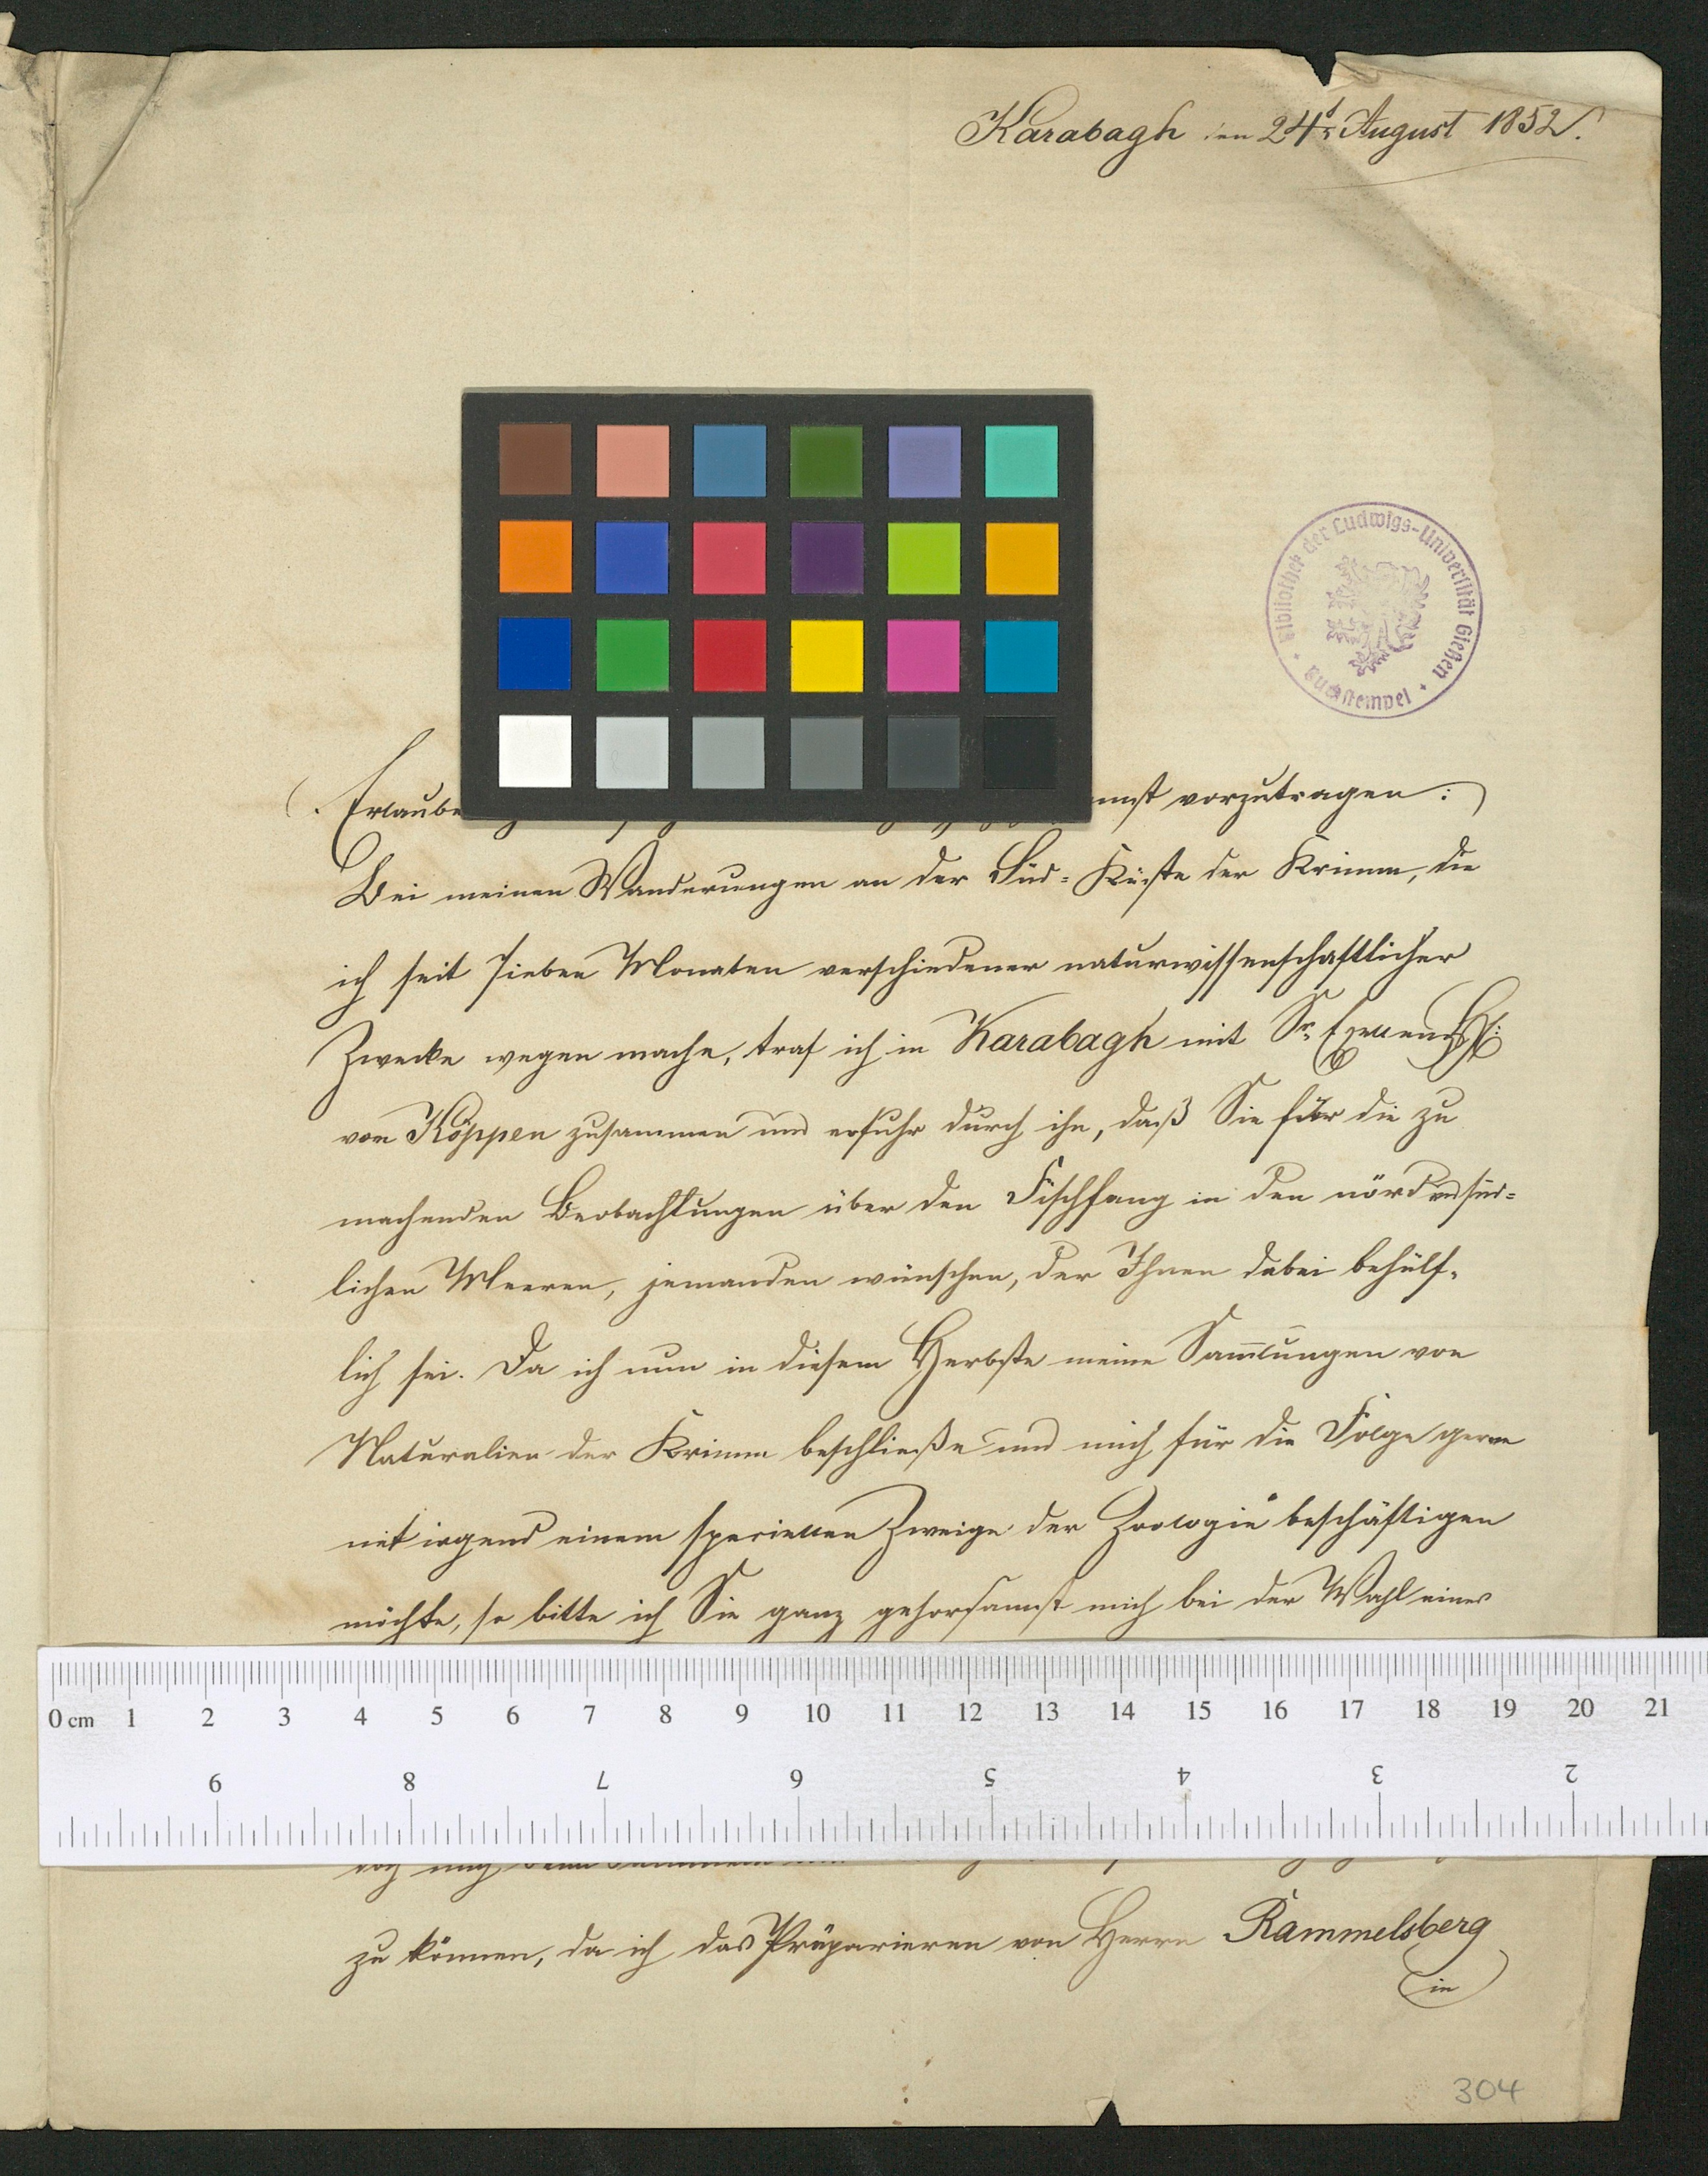 Karabagh den 24t August 1852.
Bibliothek der Ludwigs-Universität Gießen
Buchstempel
Erlaube
vorzutragen:
Bei meinen Wanderungen an der Süd-Küste der Krimm, die
ich seit sieben Monaten verschiedener naturwissenschaftlicher
Zwecke wegen mache, traf ich in Karabagh mit Sr. Excellenz H:
von Köppen zusammen und erfuhr durch ihn, daß Sie für die zu
machenden Beobachtungen über den Fischfang in den nörd und süd-
lichen Meeren, jemanden wünschen, der Ihnen dabei behülf-
lich sei. Da ich nun in diesem Herbste meine Sam̅lungen von
Naturalien der Krimm beschließe und mich für die Folge gerne
mit irgend einem speciellen Zweige der Zoologie beschäftigen
möchte, so bitte ich Sie ganz gehorsamst mich bei der Wahl eines
0 cm 1 2 3 4 5 6 7 8 9 10 11 12 13 14 15 16 17 18 19 20 21
9 8 7 6 5 4 3 2
zu können, da ich das Präparieren von Herrn Rammelsberg
in
304